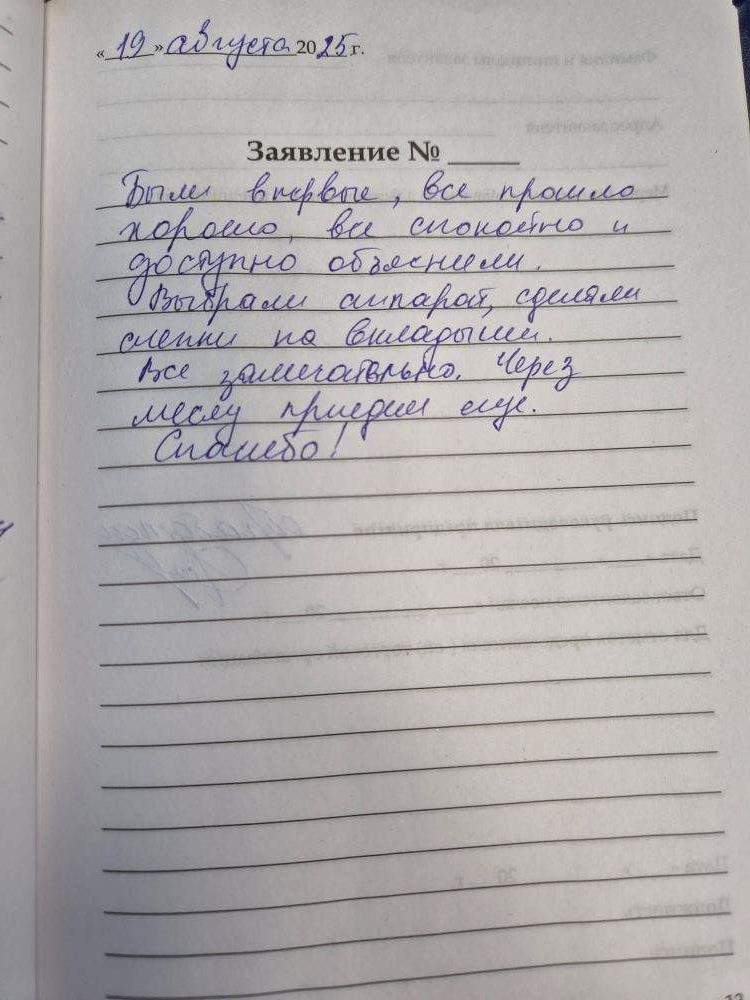 « 19 » августа 2025 г.
Заявление № ____
Были впервые, все прошло
хорошо, все спокойно и
доступно объяснили.
Выбрали аппарат, сделали
слепки на вкладыши.
Все замечательно. Через
месяц приедем еще.
Спасибо!